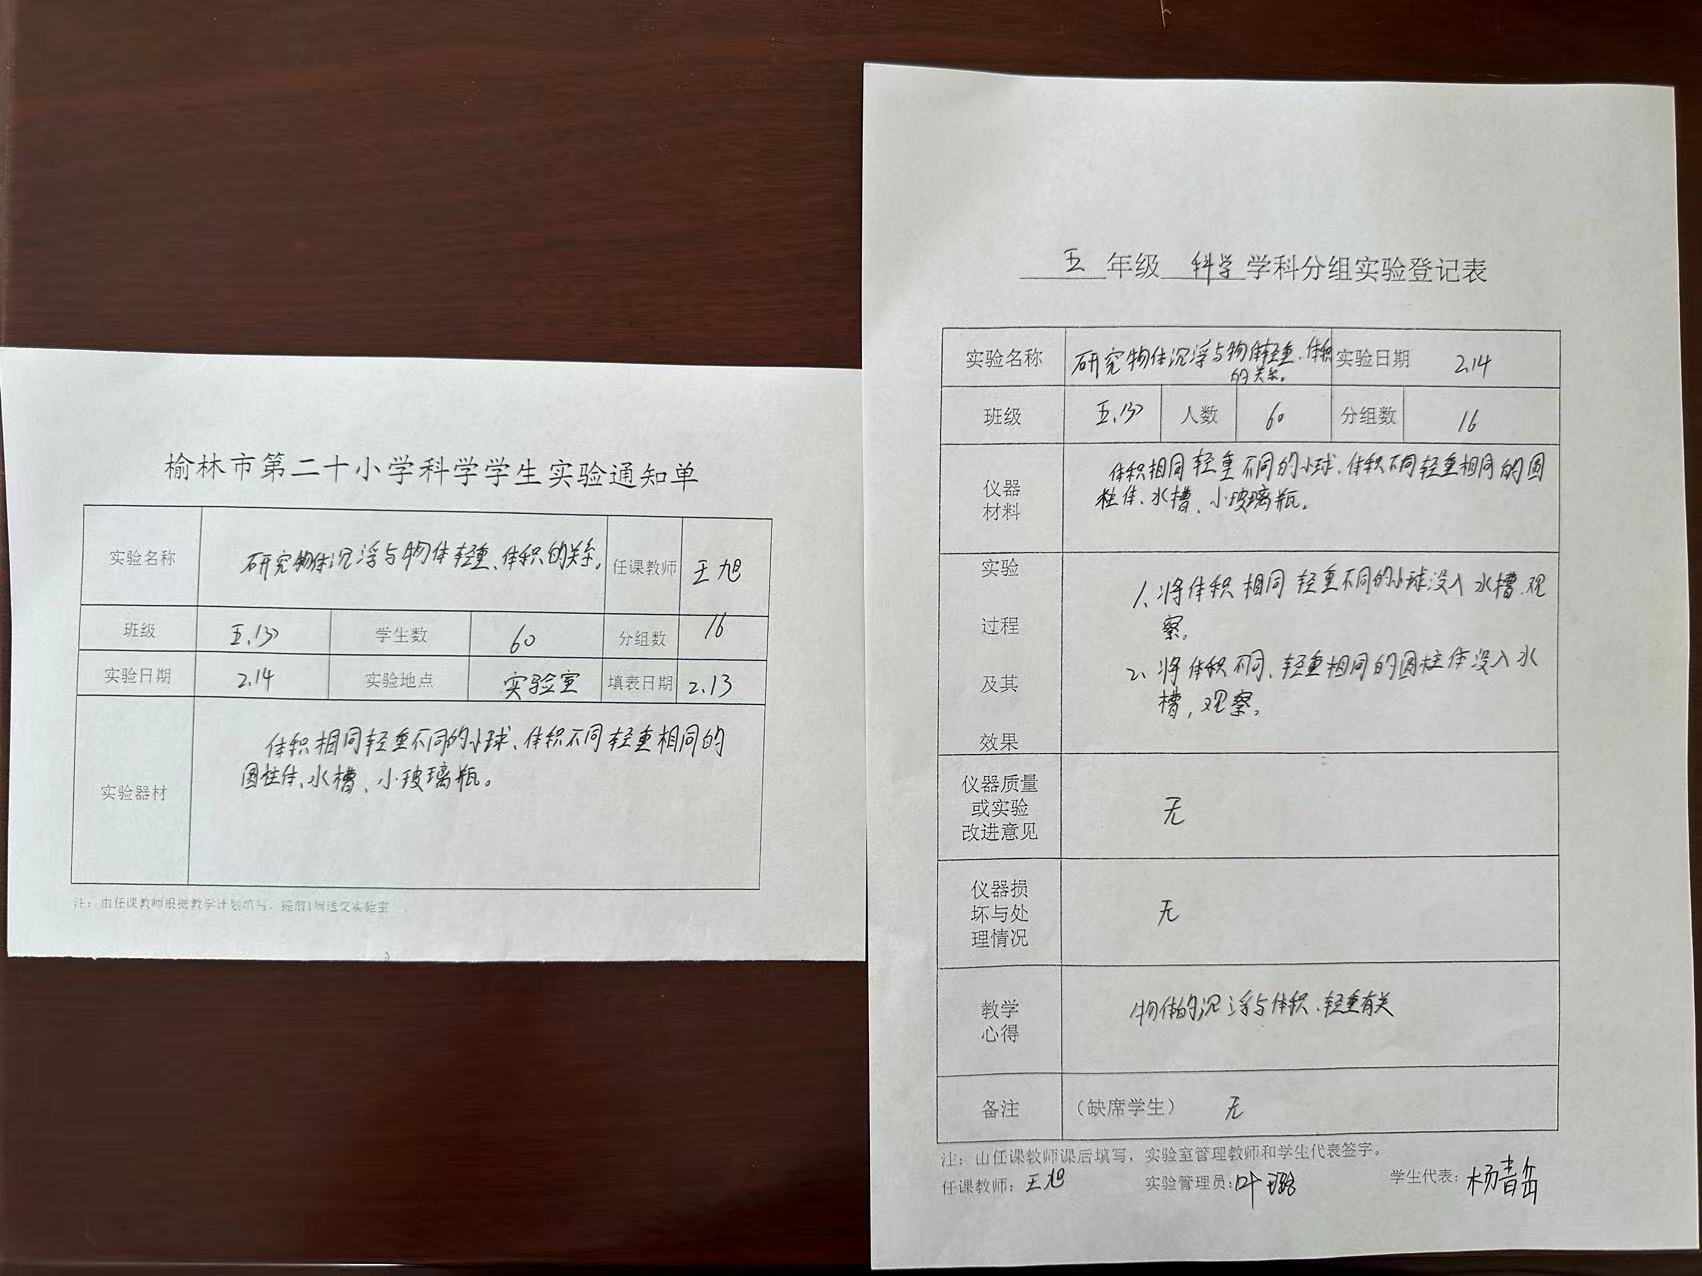 榆林市第二十小学科学学生实验通知单
实验名称 研究物体沉浮与物体轻重、体积的关系。 任课教师 王旭
班级 五.13> 学生数 60 分组数 16
实验日期 2.14 实验地点 实验室 填表日期 2.13
实验器材 体积相同轻重不同的小球、体积不同轻重相同的
圆柱体、水槽、小玻璃瓶。
注：由任课教师根据教学计划填写，提前1周送交实验室
五 年级 科学 学科分组实验登记表
实验名称 研究物体沉浮与物体轻重、体积
的关系。
实验日期 2.14
班级 五.13> 人数 60 分组数 16
仪器
材料
体积相同轻重不同的小球、体积不同轻重相同的圆
柱体、水槽、小玻璃瓶。
实验
过程
及其
效果
1、将体积相同轻重不同的小球没入水槽、观
察。
2、将体积不同、轻重相同的圆柱体没入水
槽，观察。
仪器质量
或实验
改进意见
无
仪器损
坏与处
理情况
无
教学
心得
物体的沉浮与体积、轻重有关
备注 （缺席学生） 无
注：由任课教师课后填写，实验室管理教师和学生代表签字。
任课教师：王旭 实验管理员：叶璐 学生代表：杨青